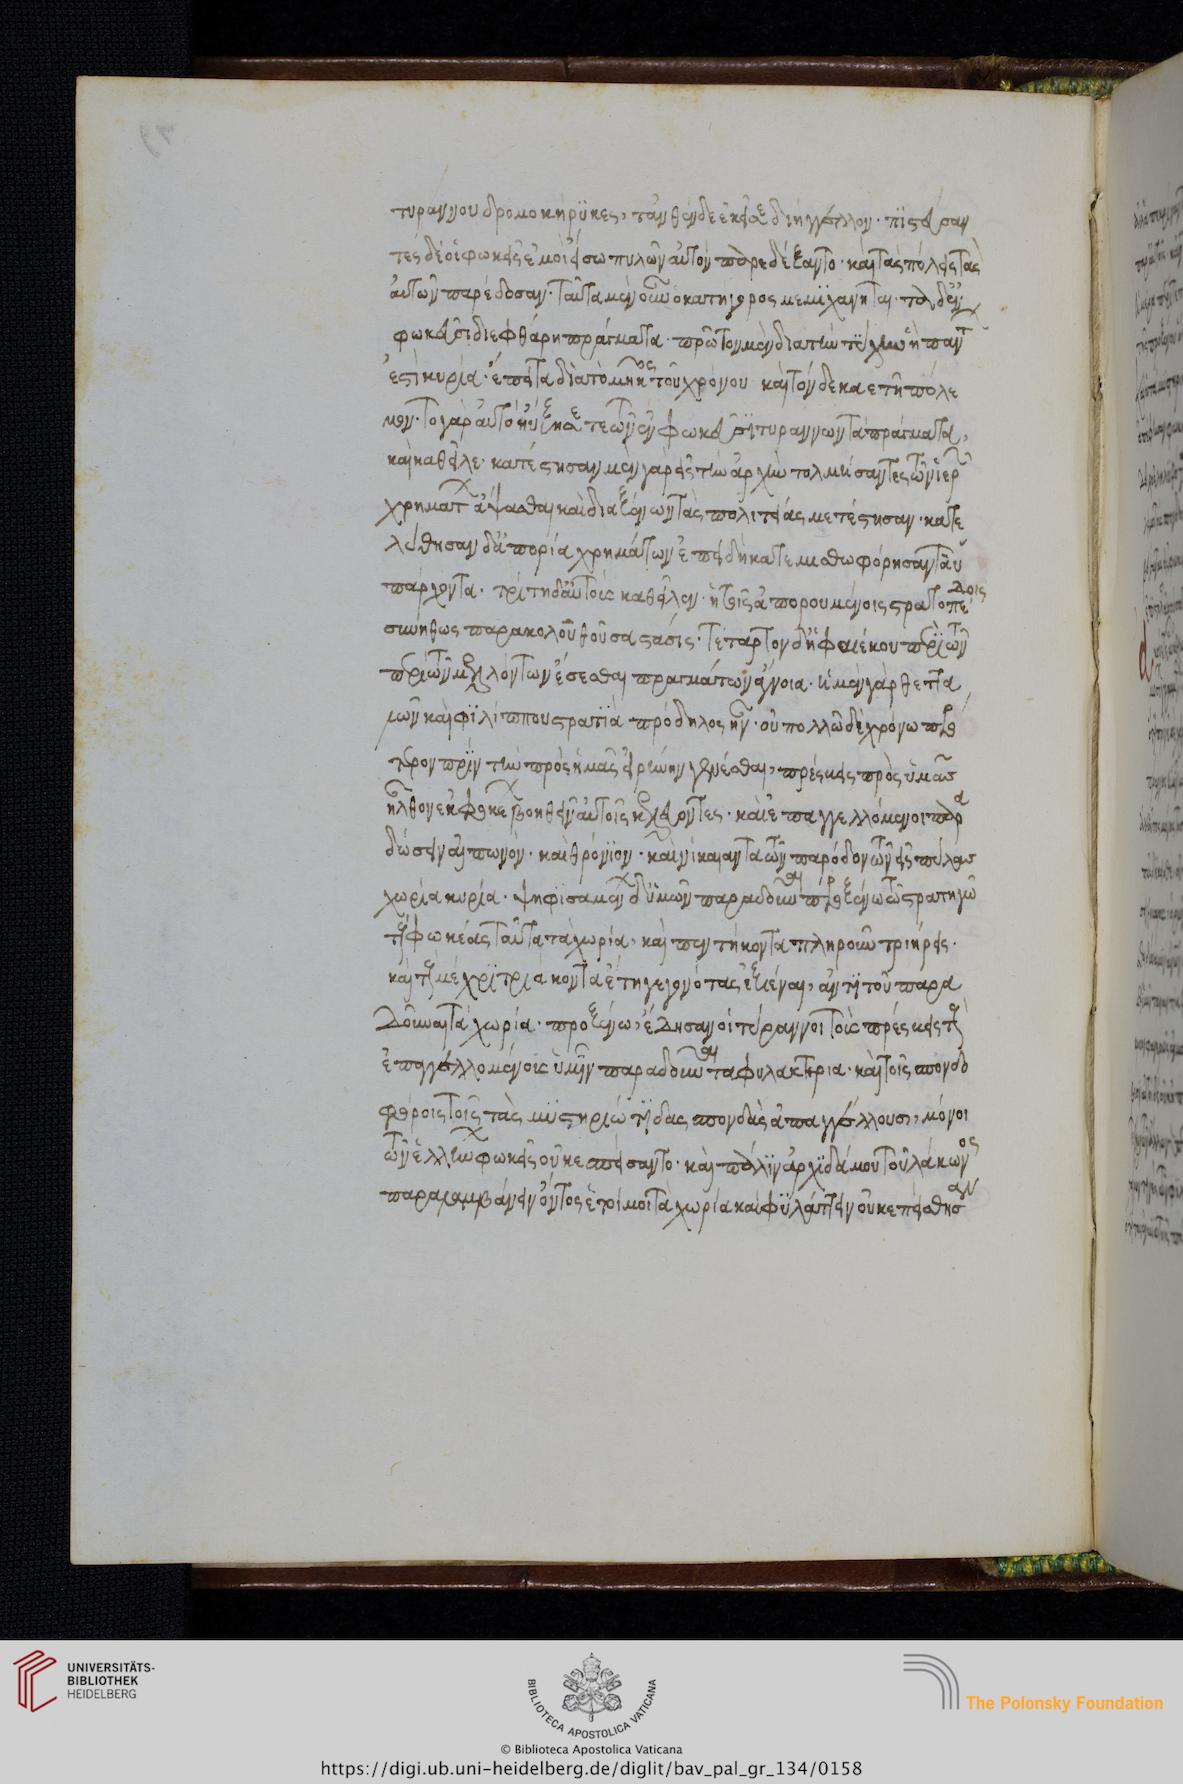 τυράννου δρομοκήρϋκες, τἀνθένδε ἐκεῖσε διήγγελλον· πϊστεύσαν
τες δὲ οἱ φωκεῖς ἐμοὶ εἴσω πυλῶν αὐτὸν παρεδέξαντο· καὶ τὰς πόλεις τὰς
αὐτῶν παρέδοσαν· ταῦτα μὲν οὖν ὁ κατήγορος μεμϊχάνηται· τὰ δ' ἐν
φωκεῦσι διεφθάρη πράγματα· πρῶτον μὲν διὰ τὴν τύχην ἣ πάντ
ἐστὶ κυρία· ἔπειτα διὰ τὸ μῆκος τοῦ χρόνου καὶ τὸν δεκαετῆ πόλε
μον· τὸ γὰρ αὐτὸ ηὔξησε τε τῶν ἐν φωκεῦσϊ τυραννων τὰ πράγματα,
καὶ καθεῖλε· κατέστησαν μὲν γὰρ εἰς τὴν ἀρχὴν τολμήσαντες τῶν ἱερῶν
χρημάτων ἅψασθαι καὶ διὰ ξένων τὰς πολιτείας μετέστησαν· κατε
λύθησαν δ' ἀπορία χρημάτων ἐπειδὴ κατεμισθωφόρησαν τὰ ὑ
πάρχοντα· τρίτη δ' αὐτοὺς καθεῖλεν· ἡ τοῖς ἀπορουμένοις στρατοπέδοις
συνήθως παρακολουθοῦσα στάσις· τέταρτον δ' ἡ φαλαίκου περὶ τῶν
περὶ τῶν μελλόντων ἔσεσθαι πραγμάτων ἄγνοια· ἡ μὲν γὰρ θεττα
λῶν καὶ φϊλίππου στρατϊὰ πρόδηλος ἦν· οὐ πολλῶ δὲ χρόνω πρό
τερον πρϊν τὴν πρὸς ἡμᾶς εἰρήνην γενέσθαι, πρέσβεις πρὸς ὑμᾶς
ἦλθον ἐκ φωκέων βοηθεῖν αὐτοῖς κελεύοντες· καὶ ἐπαγγελλόμενοι παρα
δώσειν ἀλπωνόν· καὶ θρόνϊον· καὶ νίκαιαν τὰ τῶν παρόδον τῶν εἰς πύλας
χωρία κυρία· ψηφϊσαμένων δ' ὑμῶν παραδοῦναι προξένω τῶ στρατηγῶ
τοὺς φωκέας ταῦτα τὰ χωρία, καὶ πεντήκοντα πληροῦν τριήρεις·
καὶ τοὺς μέχρϊ τριάκοντα ἔτη γεγονότας ἐξιέναι, ἀντϊ τοῦ παρα
δοῦναι τὰ χωρία· προξένω, ἔδησαν οἱ τύραννοι τοὺς πρέσβεις τοὺς
ἐπαγγελλομένους ὑμῖν παραδοῦναι τὰ φυλακτήρια· καὶ τοῖς σπονδο
φόροις τοῖς τὰς μϋστηριώτϊδας σπονδὰς ἀπαγγέλλουσι, μόνοι
τῶν ἑλλήνων φωκεῖς οὐκ ἐσπείσαντο· καὶ πάλϊν ἀρχϊδάμου τοῦ λάκωνος
παραλαμβάνειν ὄντος ἑτοίμοι τὰ χωρία καὶ φϋλάττειν οὐκ ἐπείσθησαν